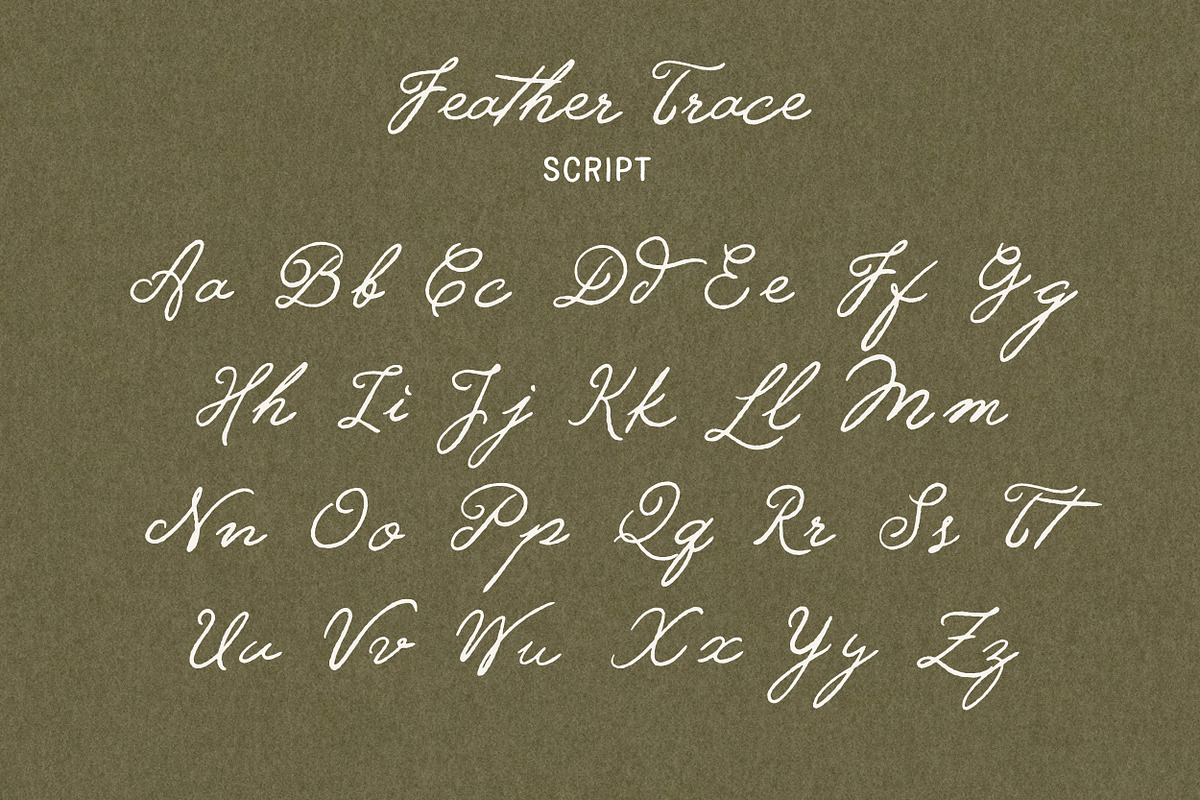 Feather Trace
SCRIPT
Aa Bb Cc Dd Ee Ff Gg
Hh Ii Jj Kk Ll Mm
Nn Oo Pp Qq Rr Ss Tt
Uu Vv Wu Xx Yy Zz